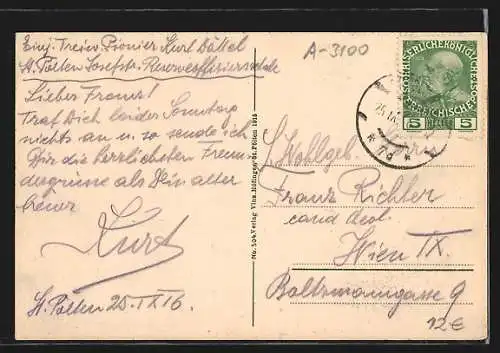 Einj. Freiw. Pionier Kurl Döttel
St. Pölten Josefstr. Reserveoffiziersschule
Lieber Franz!
Traf Dich leider Sonntag
nichts an u. so sende ich
Dir die herzlichsten Freun
desgrüsse als Dein alter
treuer
Kurt
St. Pölten 25. IX 16.
No. 504. Verlag Vinz. Höfinger, St. Pölten 1915
A-3100
KAISERLICHE KÖNIGLICHE
ÖSTERREICHISCHE POST
5 5
25. IX.
Herrn
S. Wohlgeb.
Franz Richter
cand.
Wien IX.
Boltzmanngasse 9
12€